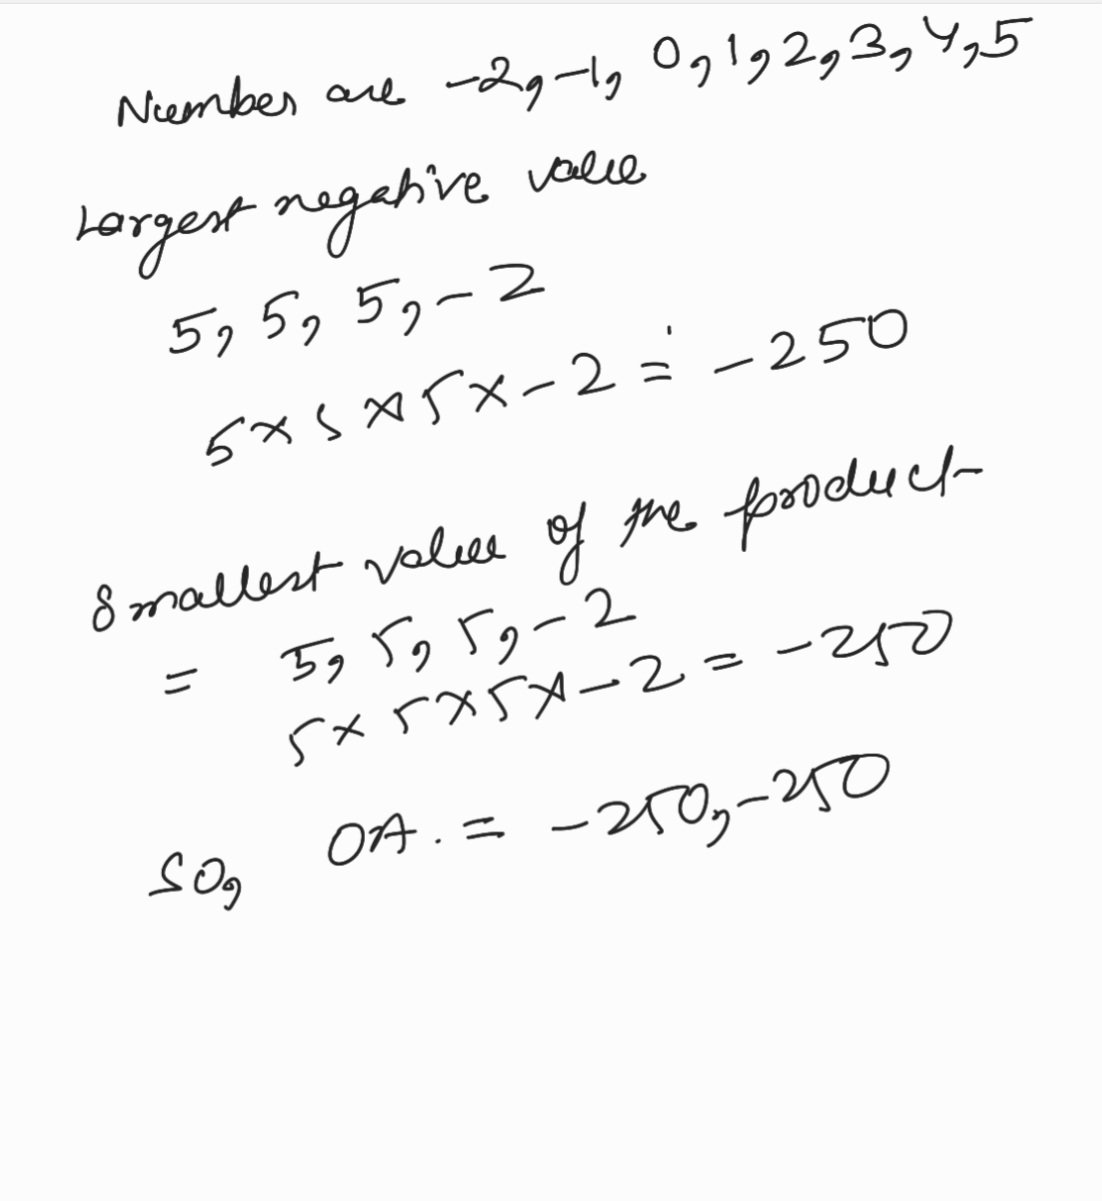 Number are -2, -1, 0, 1, 2, 3, 4, 5
Largest negative value
5, 5, 5, -2
5 x 5 x 5 x -2 = -250
Smallest value of the product
= 5, 5, 5, -2
5 x 5 x 5 x -2 = -250
SO, OA. = -250, -250